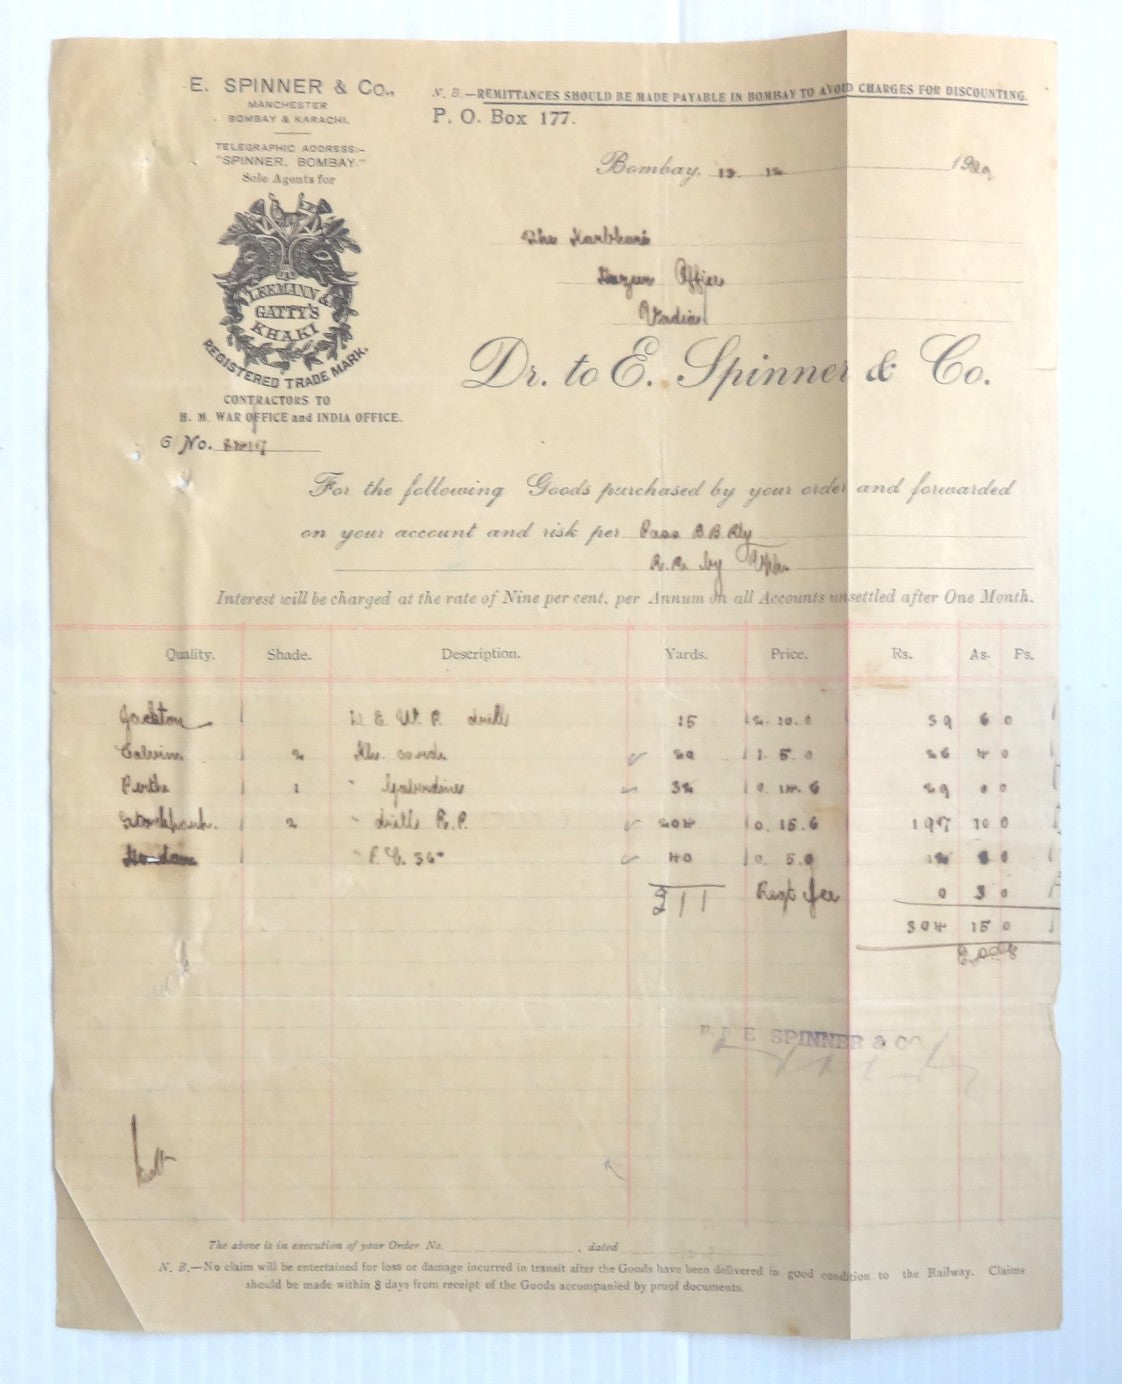 E. SPINNER & Co.,
MANCHESTER
BOMBAY & KARACHI.
TELEGRAPHIC ADDRESS:-
"SPINNER, BOMBAY."
Sole Agents for
LEEMANN &
GATTY'S
KHAKI
REGISTERED TRADE MARK.
CONTRACTORS TO
H. M. WAR OFFICE and INDIA OFFICE.
G No.
N. B.—REMITTANCES SHOULD BE MADE PAYABLE IN BOMBAY TO AVOID CHARGES FOR DISCOUNTING.
P. O. Box 177.
Bombay, 12 19
The Karbhari
Office
Vadia
Dr. to E. Spinner & Co.
For the following Goods purchased by your order and forwarded
on your account and risk per Pass B.B.Rly
R.R. by
Interest will be charged at the rate of Nine per cent. per Annum on all Accounts unsettled after One Month.
Quality. Shade. Description. Yards. Price. Rs. As. Ps.
drill 15 2. 10. 0 39 6 0
Calvim 2 cords 20 1. 5. 0 26 4 0
Perth 1 " Gaberdines 32 0. 14. 6 29 0 0
2 " drill R.P. 204 0. 15. 6 197 10 0
" 36" 40 0. 5. 0 12 8 0
211 Regt fee 0 3 0
304 15 0
E. & O. E.
P. P. E SPINNER & CO.
The above is in execution of your Order No. , dated
N. B.—No claim will be entertained for loss or damage incurred in transit after the Goods have been delivered in good condition to the Railway. Claims
should be made within 8 days from receipt of the Goods accompanied by proof documents.